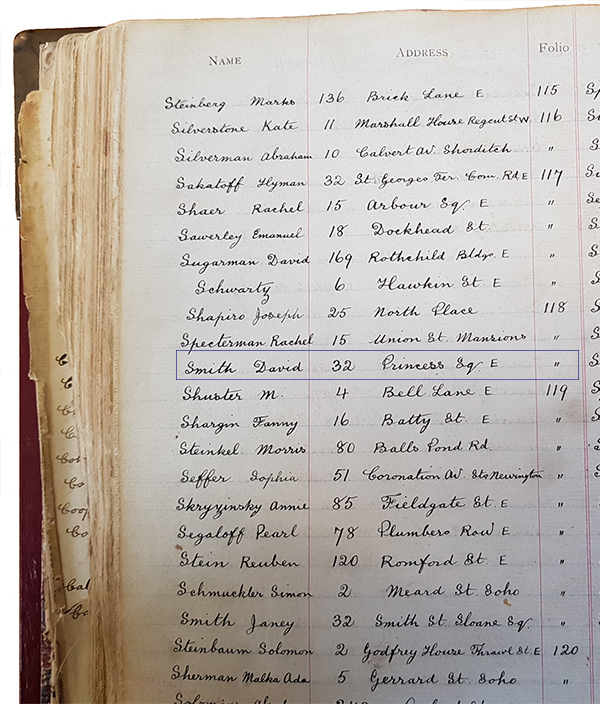 NAME ADDRESS Folio
Steinberg Marks 136 Brick Lane E 115
Silverstone Kate 11 Marshall House Regent St W 116
Silverman Abraham 10 Calvert Av. Shorditch "
Sakatoff Hyman 32 St Georges Ter. Com. Rd E 117
Shaer Rachel 15 Arbour Sq. E "
Sawerley Emanuel 18 Dockhead St. "
Sugarman David 169 Rothchild Bldgs. E "
Schwartz 6 Hawkin St E "
Shapiro Joseph 25 North Place 118
Specterman Rachel 15 Union St. Mansions "
Smith David 32 Princess Sq. E "
Shuster M. 4 Bell Lane E 119
Shargin Fanny 16 Batty St. E "
Steinkel Morris 80 Balls Pond Rd. "
Seffer Sophia 51 Coronation Av. Sts Newington "
Skryzinsky Annie 85 Fieldgate St. E "
Segaloff Pearl 78 Plumbers Row E "
Stein Reuben 120 Romford St. E "
Schmuckler Simon 2 Meard St. Soho "
Smith Janey 32 Smith St. Sloane Sq. "
Steinbaum Solomon 2 Godfrey House Thrawl St. E 120
Sherman Malka Ada 5 Gerrard St. Soho "